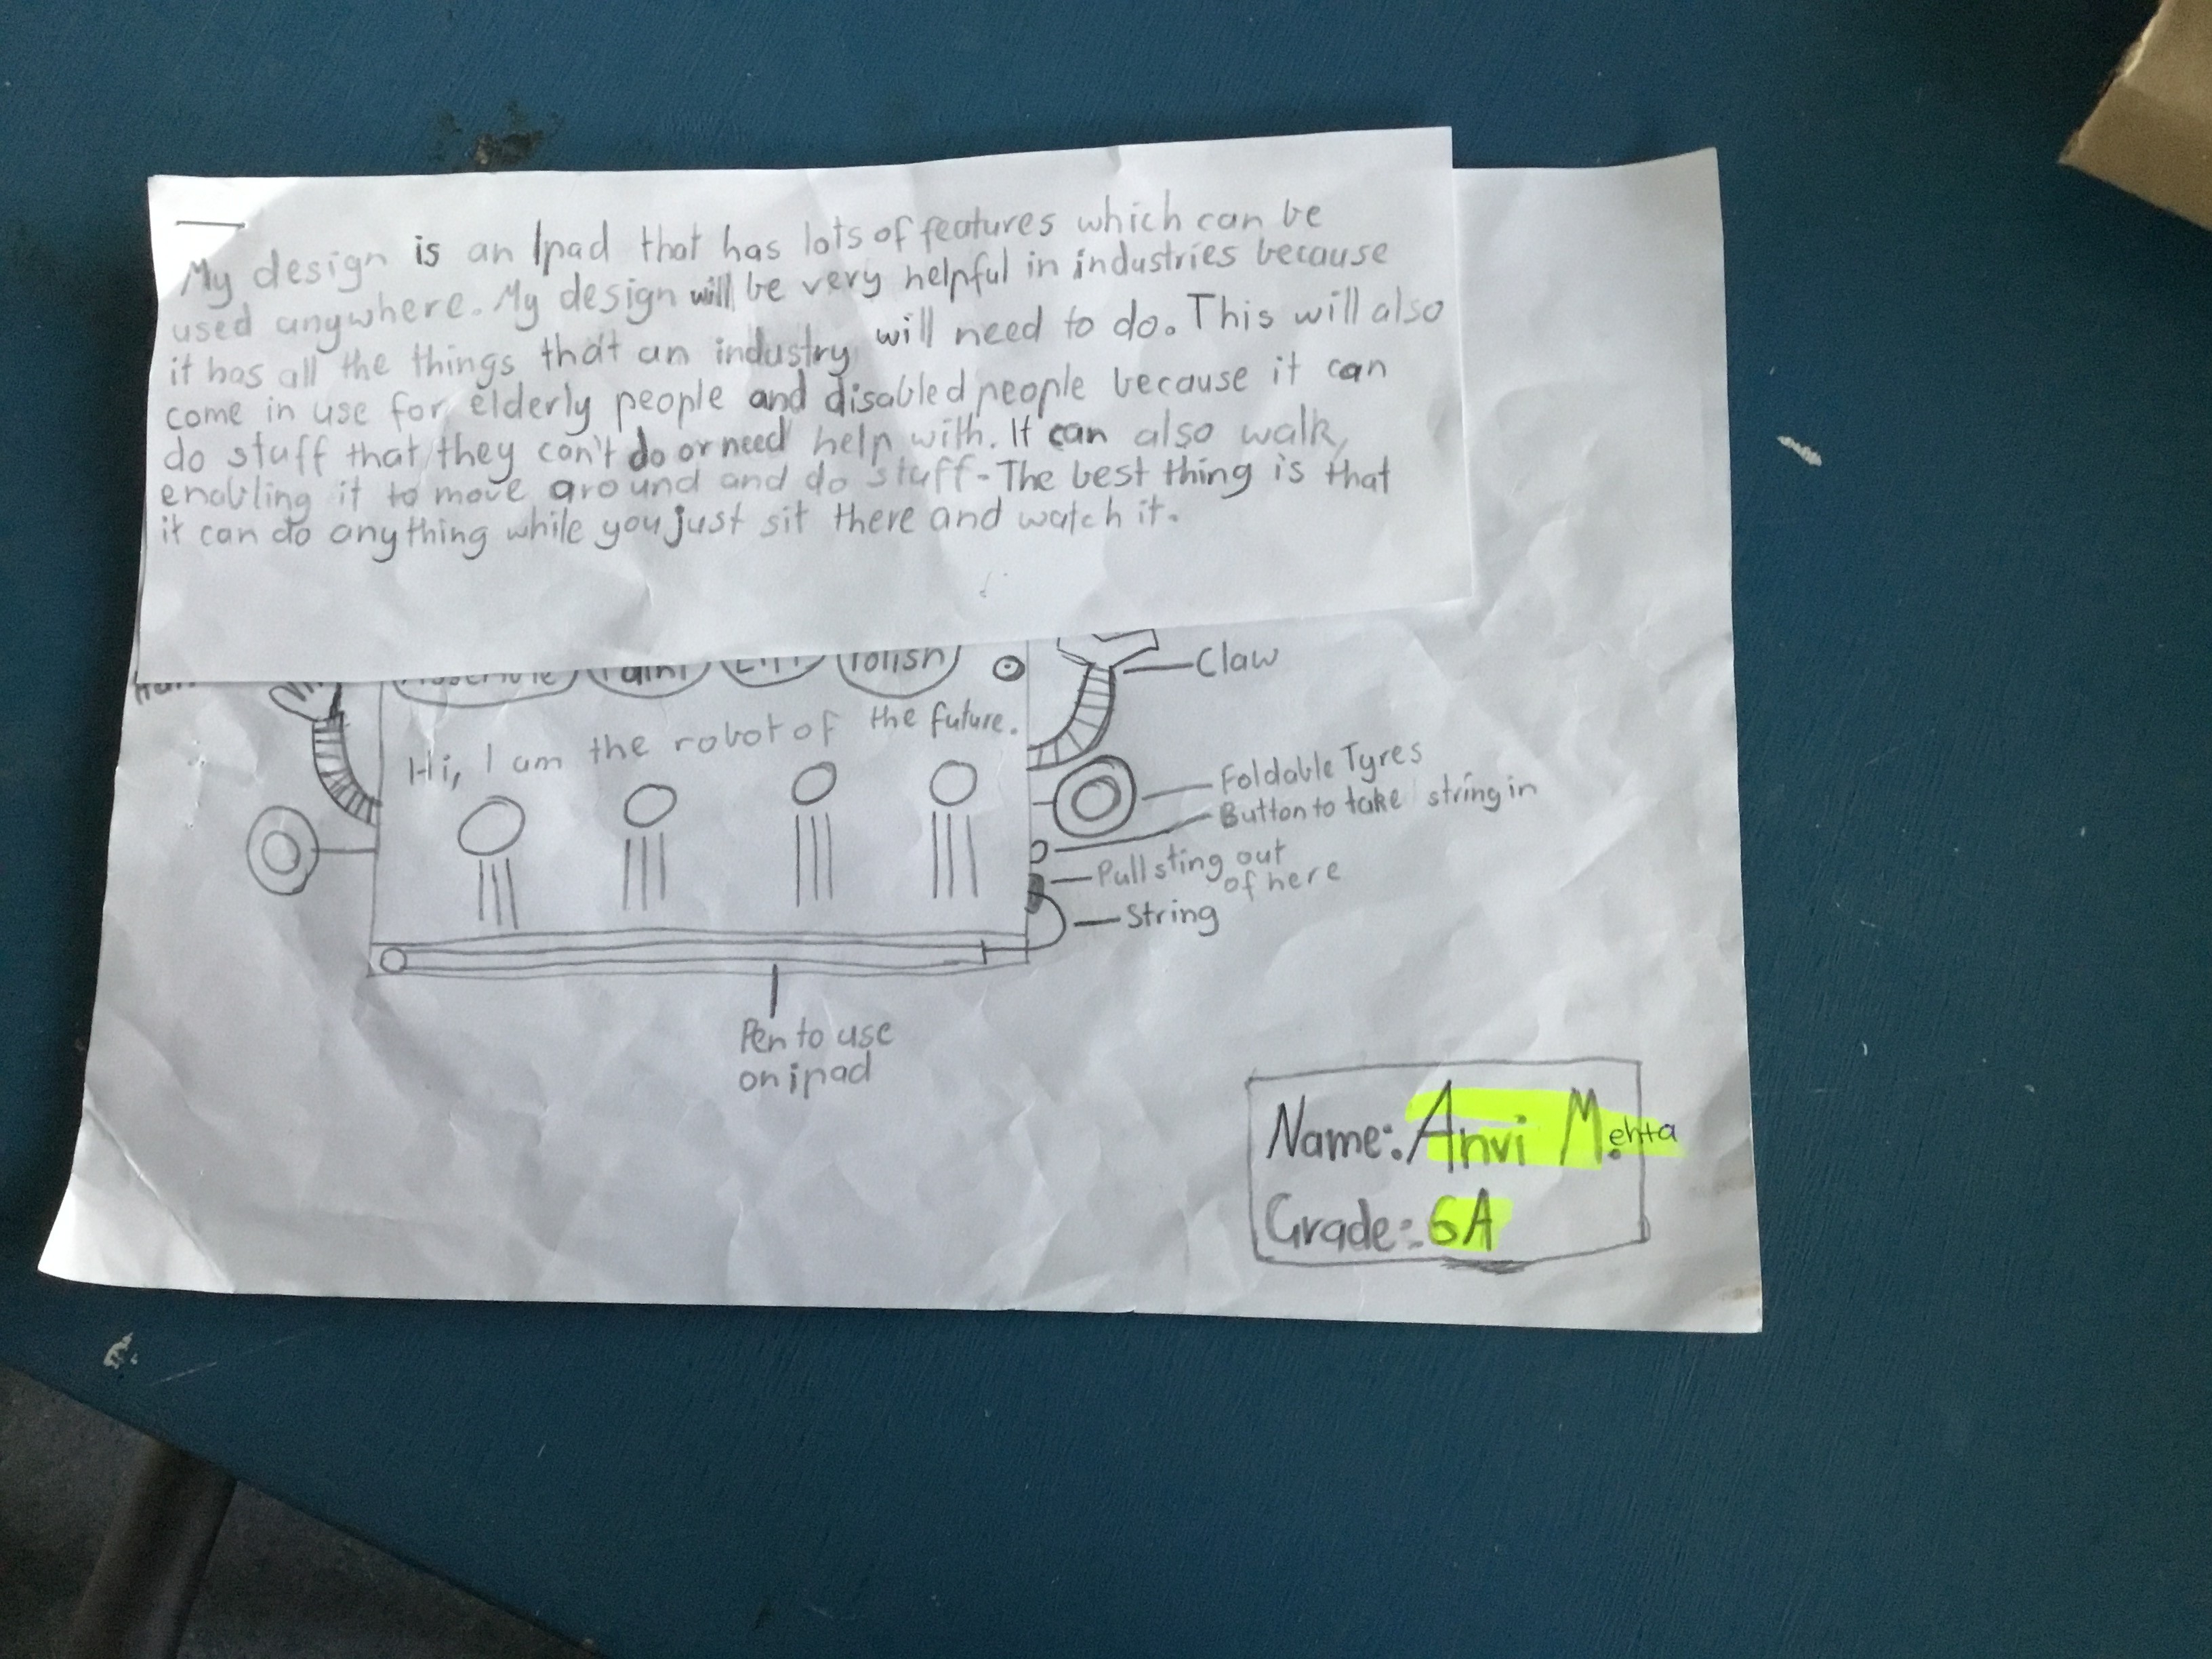 My design is an Ipad that has lots of features which can be
used anywhere. My design will be very helpful in industries because
it has all the things that an industry will need to do. This will also
come in use for elderly people and disabled people because it can
do stuff that they can't do or need help with. It can also walk,
enabling it to move around and do stuff. The best thing is that
it can do anything while you just sit there and watch it.
Polish
Claw
Hi, I am the robot of the future.
Foldable Tyres
Button to take string in
Pull sting out
of here
String
Pen to use
on ipad
Name: Anvi M.ehta
Grade:- 6A